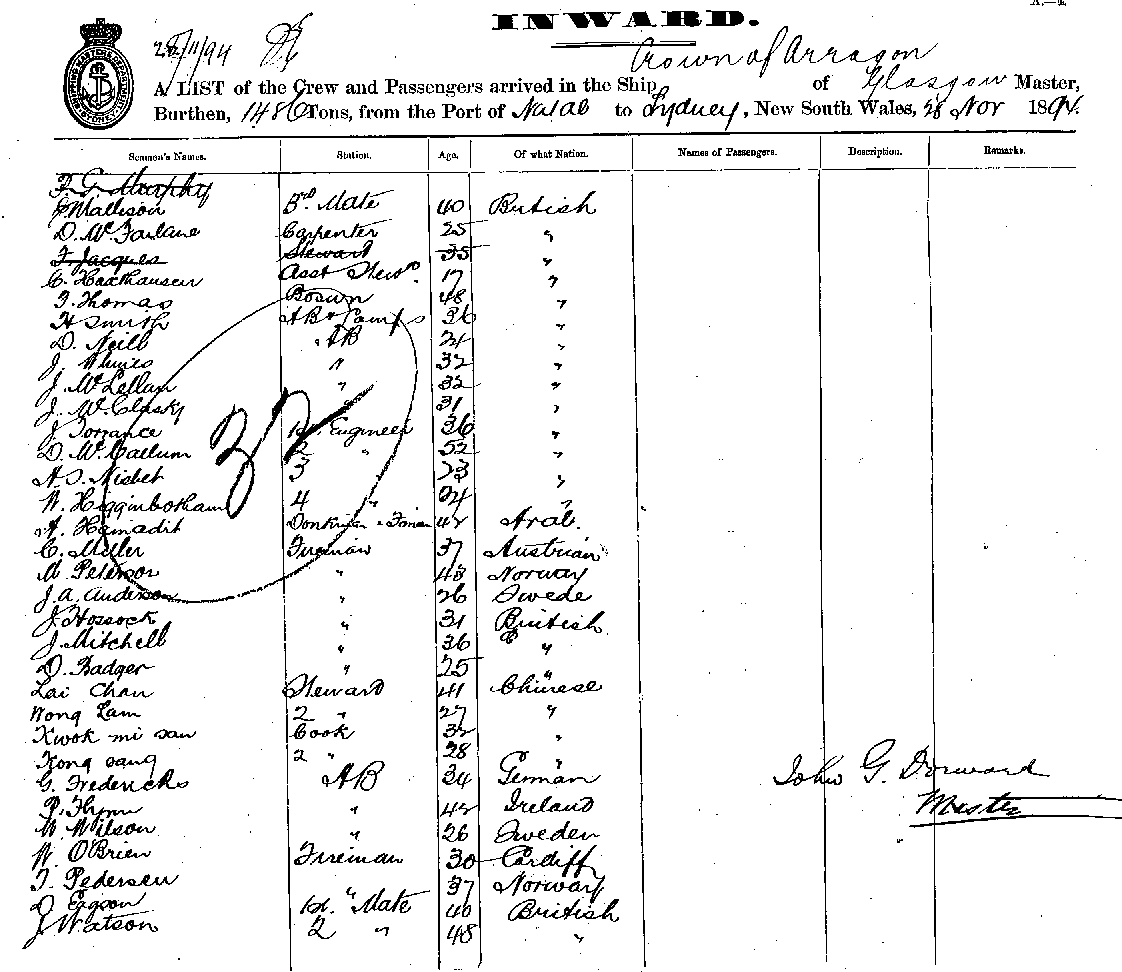 INWARD.
28/11/94
Crown of Arragon
A LIST of the Crew and Passengers arrived in the Ship of Glasgow Master,
Burthen, 1486 Tons, from the Port of Natal to Sydney, New South Wales, 28 Nov 1894.
Seamen's Names. Station. Age. Of what Nation. Names of Passengers. Description. Remarks.
F. G. Murphy
J Mallison 3rd Mate 40 British
D. McFarlane Carpenter 25 "
F Jacques Stewart 35 "
C. Haathausen Asst Stewd. 17 "
J. Thomas Bosun 48 "
H Smith AB & Lamps 36 "
D. Neill AB 24 "
J. " 32 "
J. McLellan " 32 "
J. McClasky " 31 "
J Torrance 1st Engineer 36 "
D. McCallum 2 " 52 "
A. S. Nisbet 3 33 "
W. Higginbotham 4 " 24 "
A. Hamadit Donkman & Fireman 42 Arab.
C. Miller Fireman 37 Austrian
M. Peterson " 43 Norway
J. A. Anderson " 26 Swede
J. Hossock " 31 British
J. Mitchell " 36 "
D. Badger " 25 "
Lai Chan Steward 41 Chinese
Wong Lam 2 " 27 "
Kwok mi san Cook 32 "
Kong sang 2 " 28 "
G. Fredericks AB 34 German
P. Flynn " 42 Ireland
W. Wilson " 26 Sweden
W. O'Brien Fireman 30 Cardiff
T. Pedersen " 37 Norway
D Eagson 1st. Mate 40 British
J Watson 2 " 48 "
32
John G. Dorward
Master